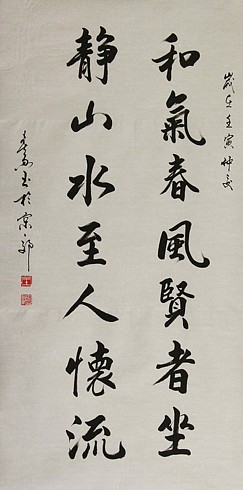 歲在壬寅仲夏
和氣春風賢者坐
静山水至人懷流
書於京郊